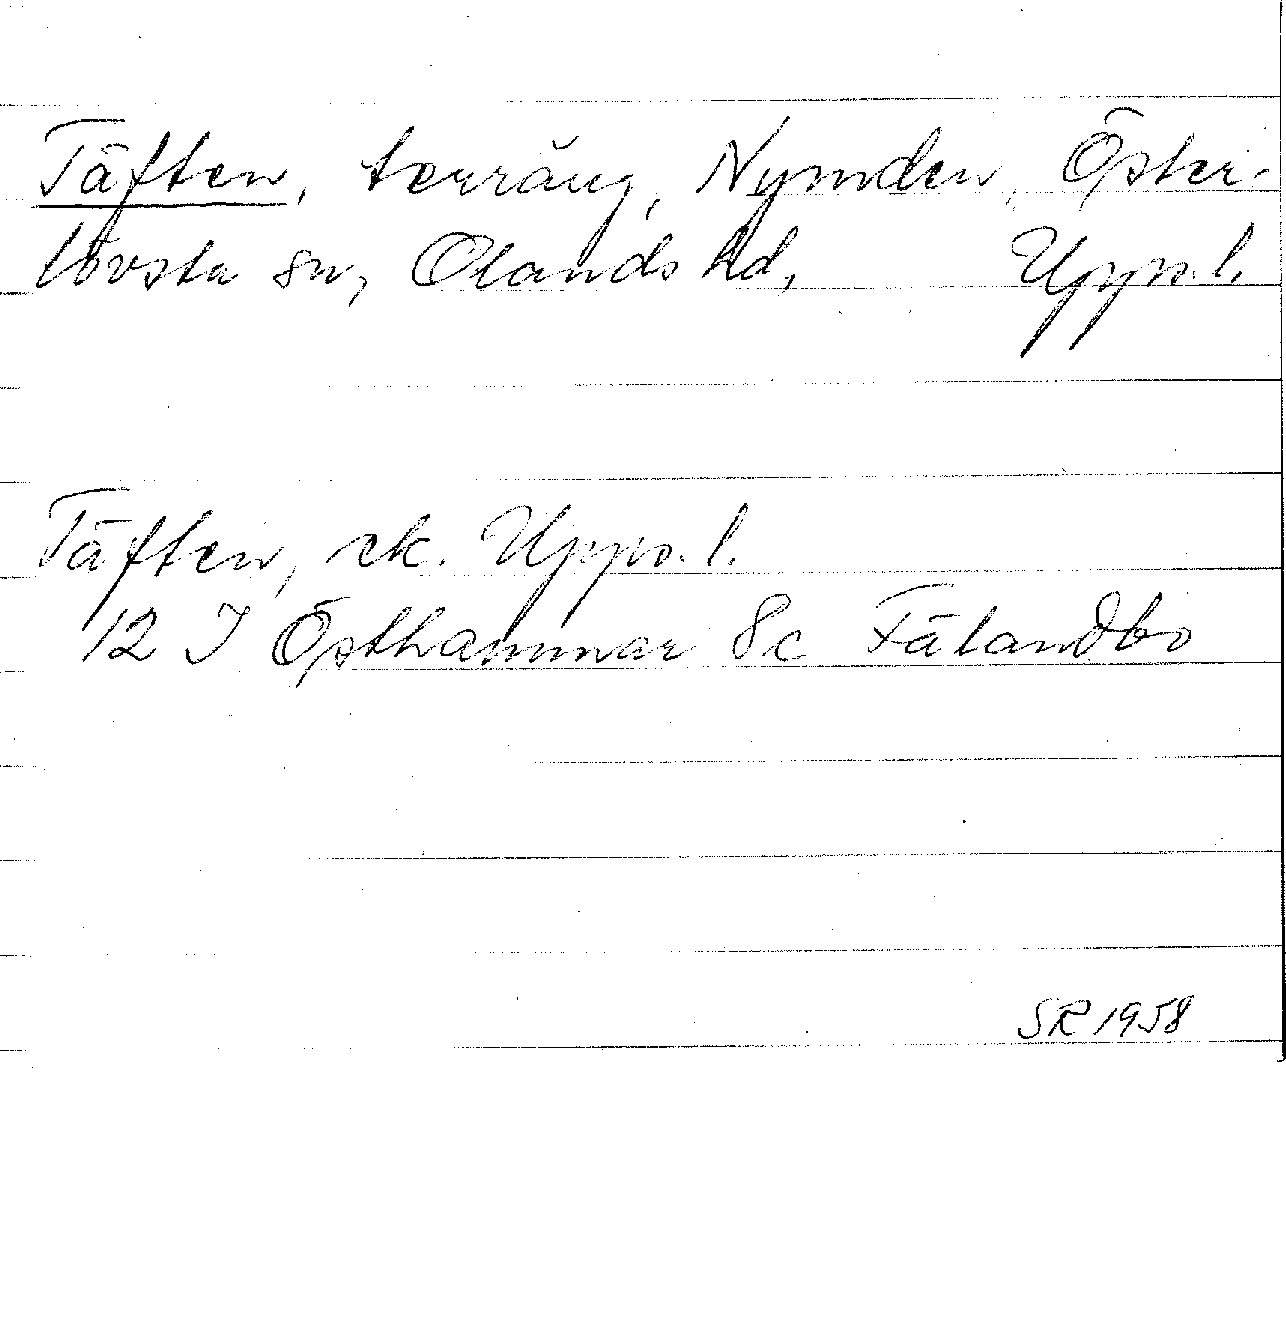 Täften, terräng, Nymden, Öster-
lövsta sn, Olands hd, Upps.l.
Täften, ek. Upps.l.
12 I Östhammar 8c Fälandbo
SR 1958